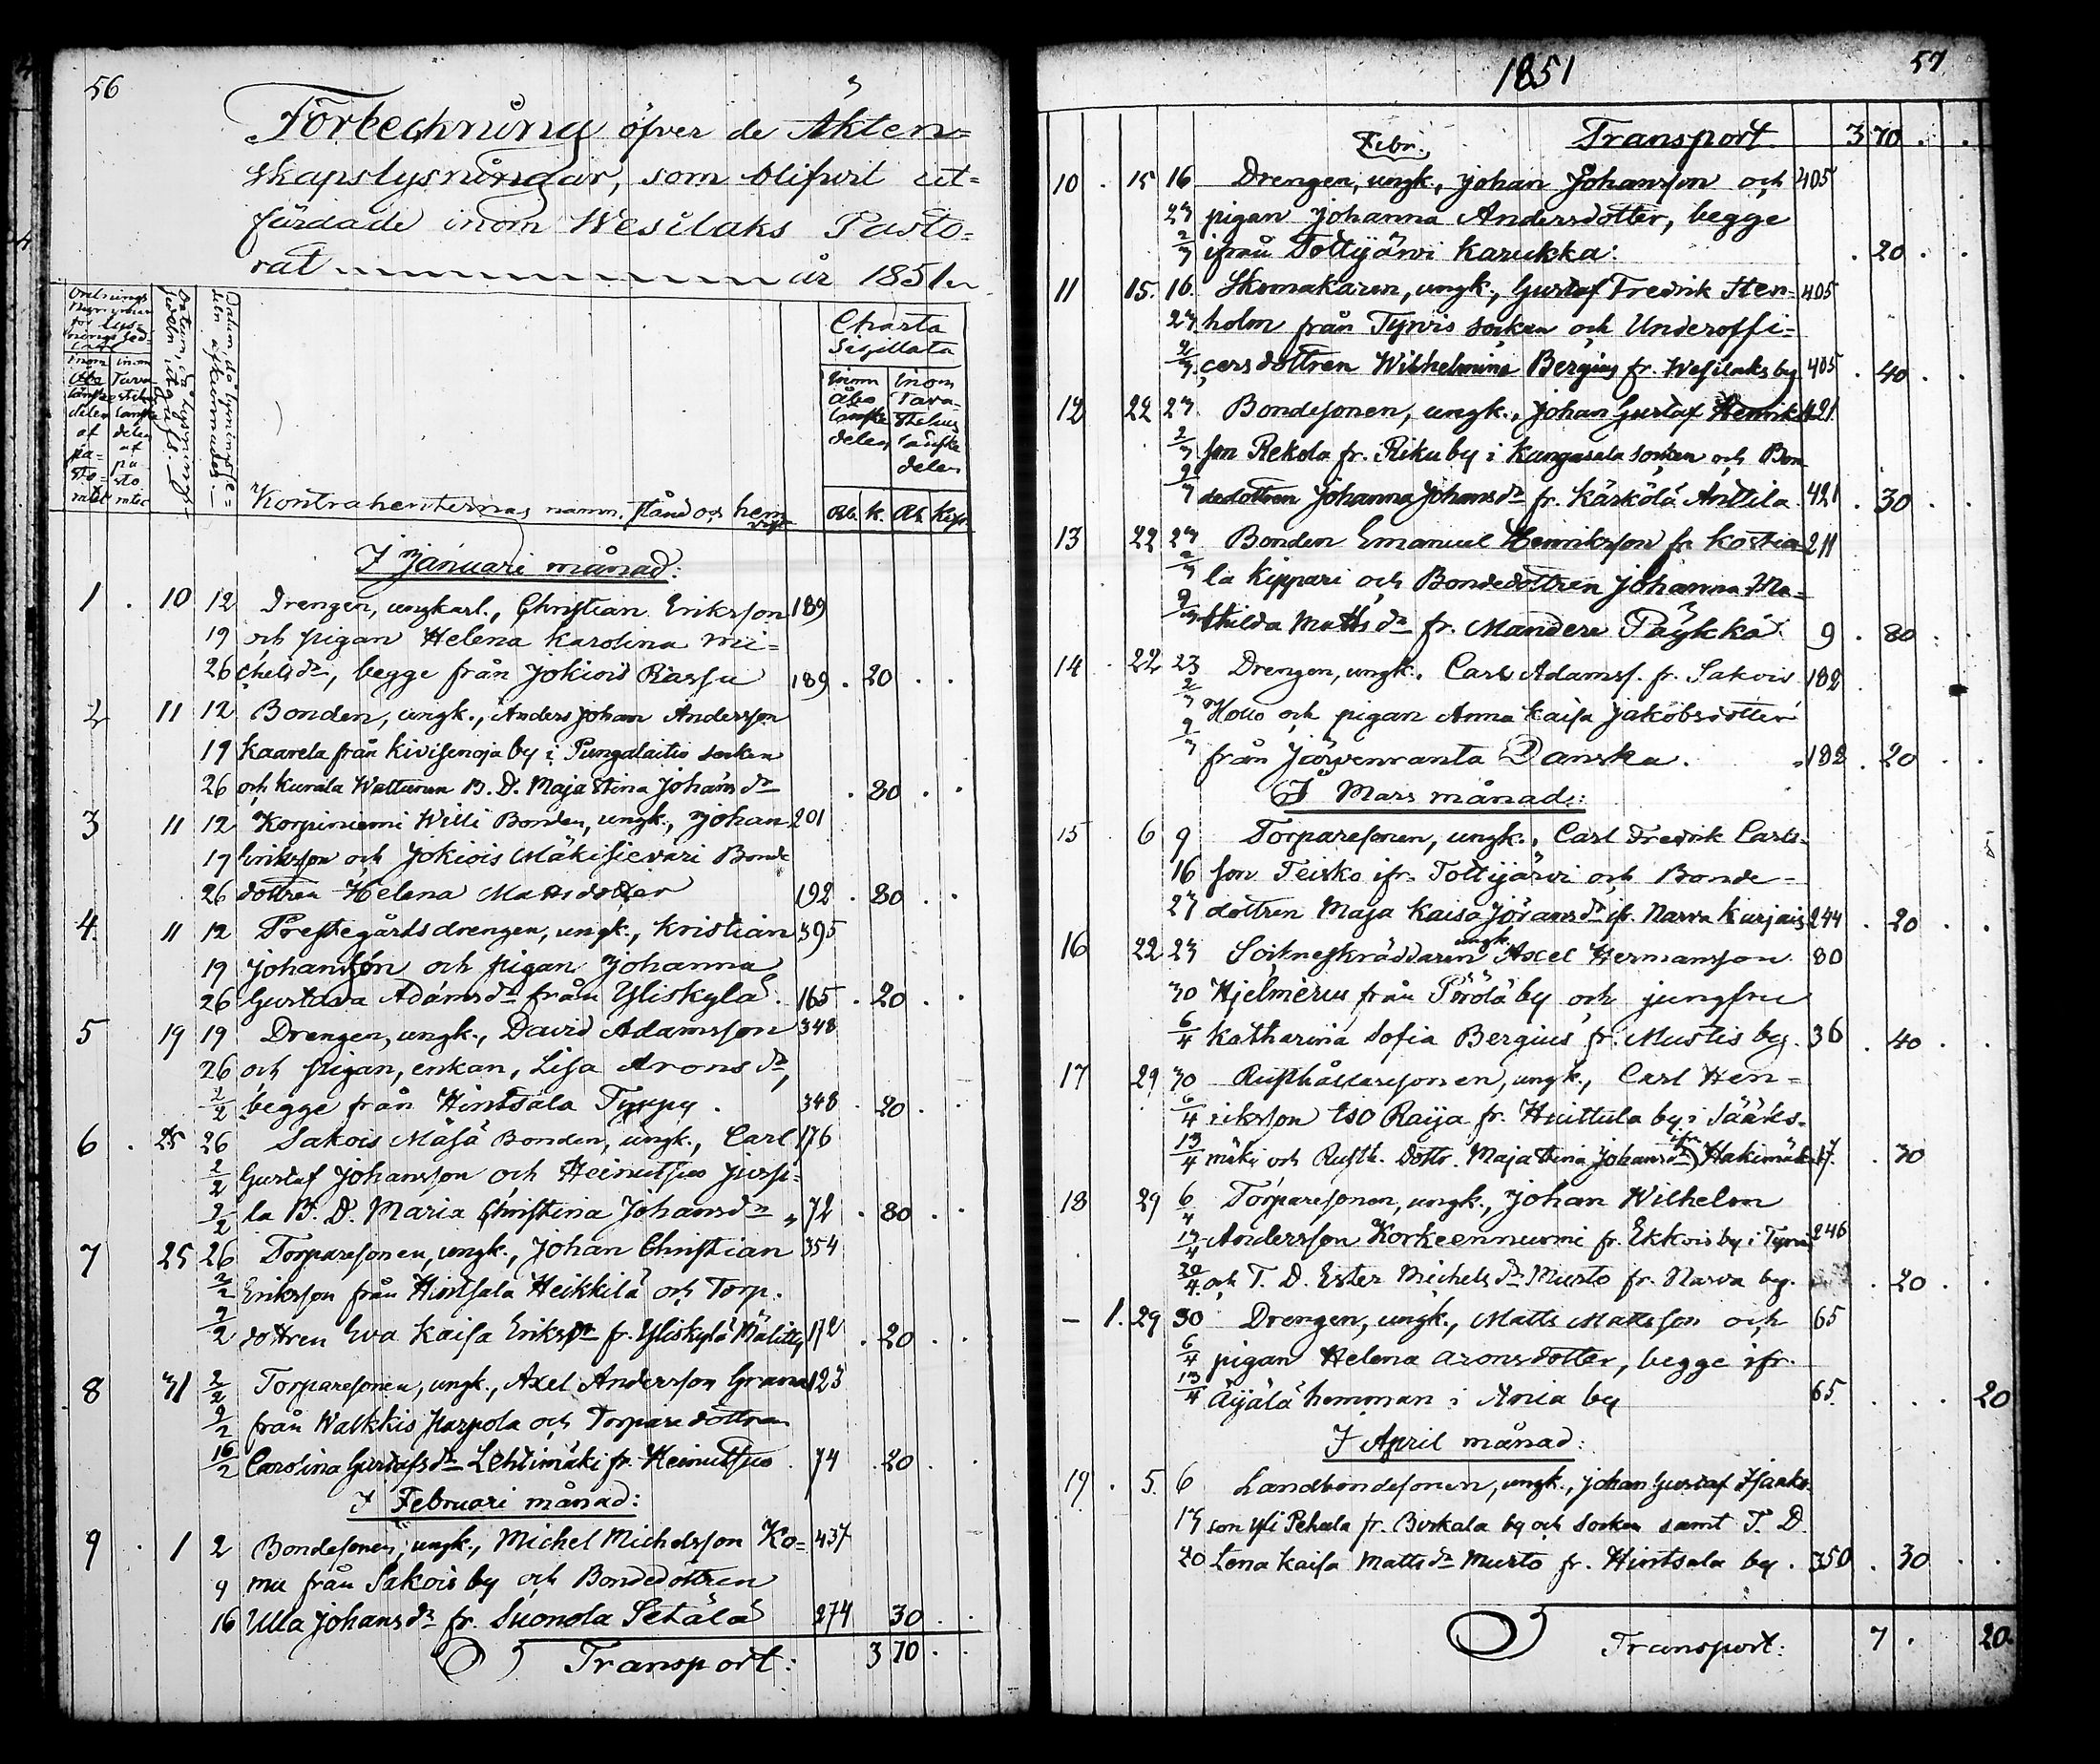 56
Förteckning öfver de Äkten=
skapslysningar, som blifvit ut=
färdade inom Wesilaks Pasto=
rat år 1851.
Ordnings
Nummer
för Lys=
nings Sed=
lar
inom Åbo länske delen af pa=sto=ratet
inom Tavastehus länske delen af pasto ratet
Datum, då lysnings sedeln utgifs.
Datum, då lysningsse=deln afkunnades.
Kontrahenternas namn, stånd och hemvist
Charta
Sigillata
inom Åbo länske delen
inom Tavastehus länske delen
Rub. k. Rub. Kop.
I Januari månad:
1 . 10 12 Drengen, ungkarl., Christian Eriksson 189
19 och pigan Helena Karolina Mi=
26 chels dr, begge från Jokiois Rassu 189 . 20 . .
2 11 12 Bonden, ungk., Anders Johan Andersson
19 Kaarela från Kivisenoja by i Pungalaitio socken
26 och Kurala Wattunen B. D. Maja Stina Johans dr . 80 . .
3 11 12 Korpiniemi Willi Bonden, ungk., Johan 201
19 Eriksson och Jokiois Mäkisievari Bonde
26 dottren Helena Mattsdotter 192 . 80 . .
4. 11 12 Prestegårdsdrengen, ungk., Kristian 395
19 Johansson och pigan Johanna
26 Gustava Adams dr från Yliskylä. 165 . 20 . .
5 19 19 Drengen, ungk., David Adamsson 348
26 och pigan, enkan, Lisa Arons dr,
2/2 begge från Hintsala Tyrpy. 348 . 20 . .
6 . 25 26 Sakois Mäsä Bonden, ungk., Carl 176
2/2 Gustaf Johansson och Heinutsuo Jussi=
9/2 la B. D. Maria Christina Johans dr 72 . 80 . .
7 25 26 Torparesonen, ungk., Johan Christian 354
2/2 Eriksson från Hintsala Heikkilä och Torp.
9/2 dottren Eva Kaisa Eriks dr fr. Yliskylä Mälitty 172 . 20 . .
8 31 2/2 Torparesonen, ungk., Axel Andersson Grann 123
9/2 från Walkkis Harpola och Torpare dottren
16/2 Carolina Gustafs dr Lehtimäki fr. Heinutsuo . 74 . 20 . .
I Februari månad:
9 . 1 2 Bondesonen, ungk., Michel Michelsson Ko= 437
9 mu från Sakois by och Bondedottren
16 Ulla Johans dr fr. Suonola Setälä 274 30 . .
Transport: 3 70 . .
1851
57
Febr. Transport 3 70 . .
10 . 15 16 Drengen, ungk., Johan Johansson och 405
23 pigan Johanna Andersdotter, begge
2/3 ifrån Tottijärvi Karukka: . 20 . .
11 15. 16. Skomakaren, ungk., Gustaf Fredrik Sten= 405
23 holm från Tyrvis socken och Underoffi=
2/3 cersdottren Wilhelmina Bergius fr. Wesilaks by 405 . 40 . .
12 22 23. Bondesonen, ungk., Johan Gustaf Henriks 421
2/3 son Rekola fr. Riku by i Kangasala socken och Bon
9/3 dedottren Johanna Johans dr fr. Kärkölä Anttila. 421 . 30 . .
13 22 23 Bonden Emanuel Henriksson fr. Kostia= 211
2/3 la Kippari och Bondedottren Johanna Ma=
9/3 thilda Matts dr fr. Mandere Päykkä 9 . 80 . .
14 . 22 23 Drengen, ungk. Carl Adamss. fr. Sakois 182
2/3 Hollo och pigan Anna Kaisa Jakobsdotter
9/3 från Järvenranta Danska. 182 . 20 . .
I Mars månad:
15 6 9 Torparesonen, ungk., Carl Fredrik Carls=
16 son Teisko ifr. Tottijärvi och Bonde=
23 dottren Maja Kaisa Jörans dr ifr. Narva Kurjais 244 . 20 . .
16 22 23 Sockneskräddaren ungk. Axel Hermansson 80
30 Hjelmerus från Pörölä by och jungfru
6/4 Katharina Sofia Bergius fr. Mustis by. 36 . 40 . .
17 29 30 Rusthållaresonen, ungk., Carl Hen=
6/4 riksson Iso Raija fr. Huittula by i Sääks=
13/4 mäki och Rusth. dottr. Maja Stina Johans dr ifr. Hakimäk 17. . 30
18 29 6/4 Torparesonen, ungk., Johan Wilhelm
13/4 Andersson Korkeennurmi fr. Ekkois by i Tyrvis 246
20/4. och T. D. Ester Michels dr Murto fr. Narva by. . 20 . .
— 1. 29 30 Drengen, ungk., Matts Mattsson och 65
6/4 pigan Helena Aronsdotter, begge ifr.
13/4 Äijälä hemman i Ania by 65. . . . 20
I April månad:
19 . 5. 6 Landbondesonen, ungk., Johan Gustaf Isaks=
13 son Yli Pehula fr. Birkala by och socken samt T. D.
20 Lena Kaisa Matts dr Murto fr. Hintsala by. 350 . 30 . .
Transport: 7 . 20.